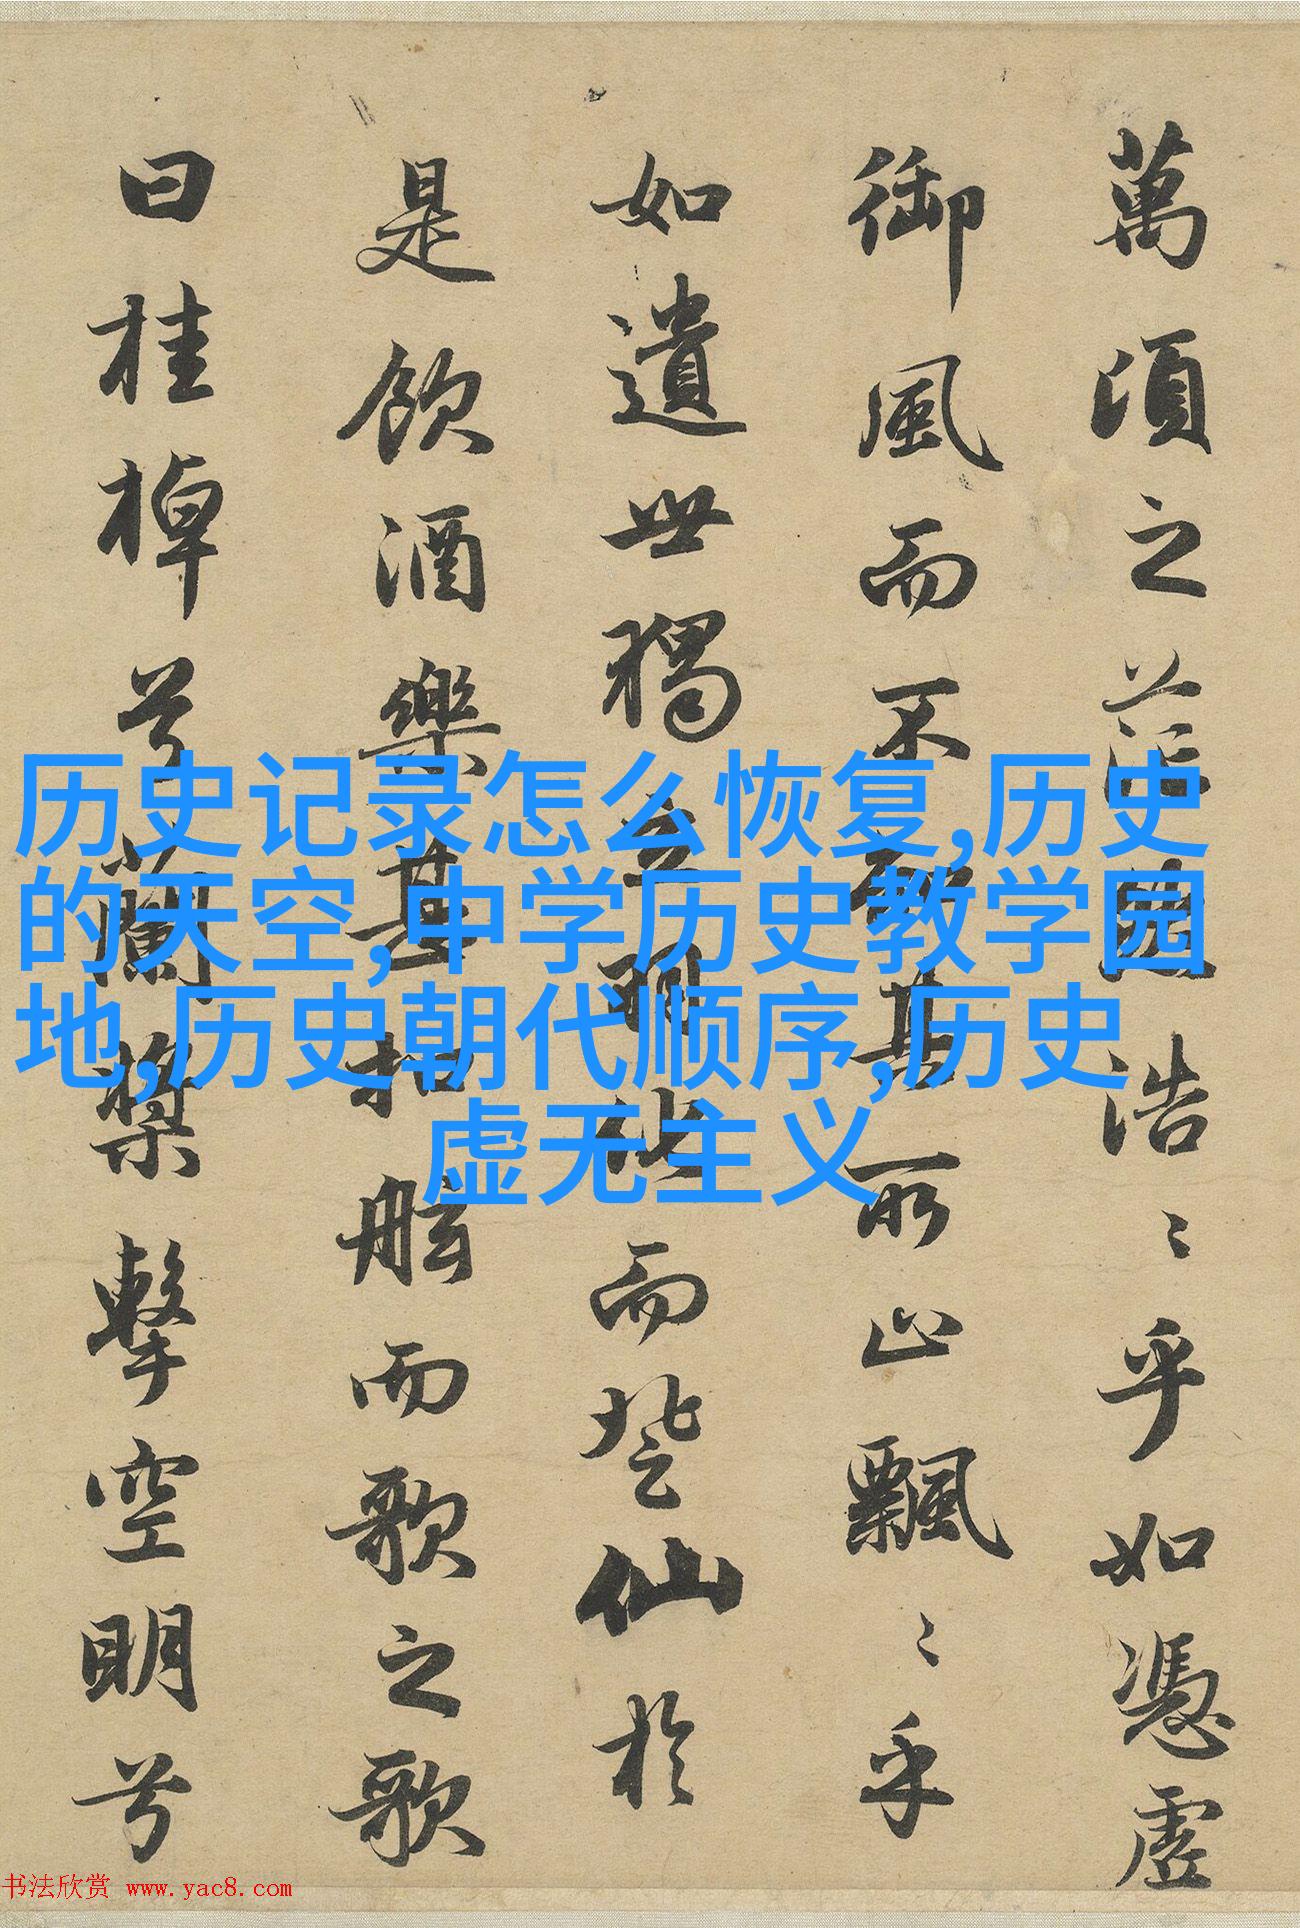 萬頃之茫然浩〻乎如憑虛
御風而不知其所止飄〻乎
如遺世獨立羽化而登仙於
是飲酒樂甚扣舷而歌之歌
曰桂棹兮蘭槳擊空明兮
历史记录怎么恢复,历史
的天空,中学历史教学园
地,历史朝代顺序,历史
虚无主义
书法欣赏 www.yac8.com